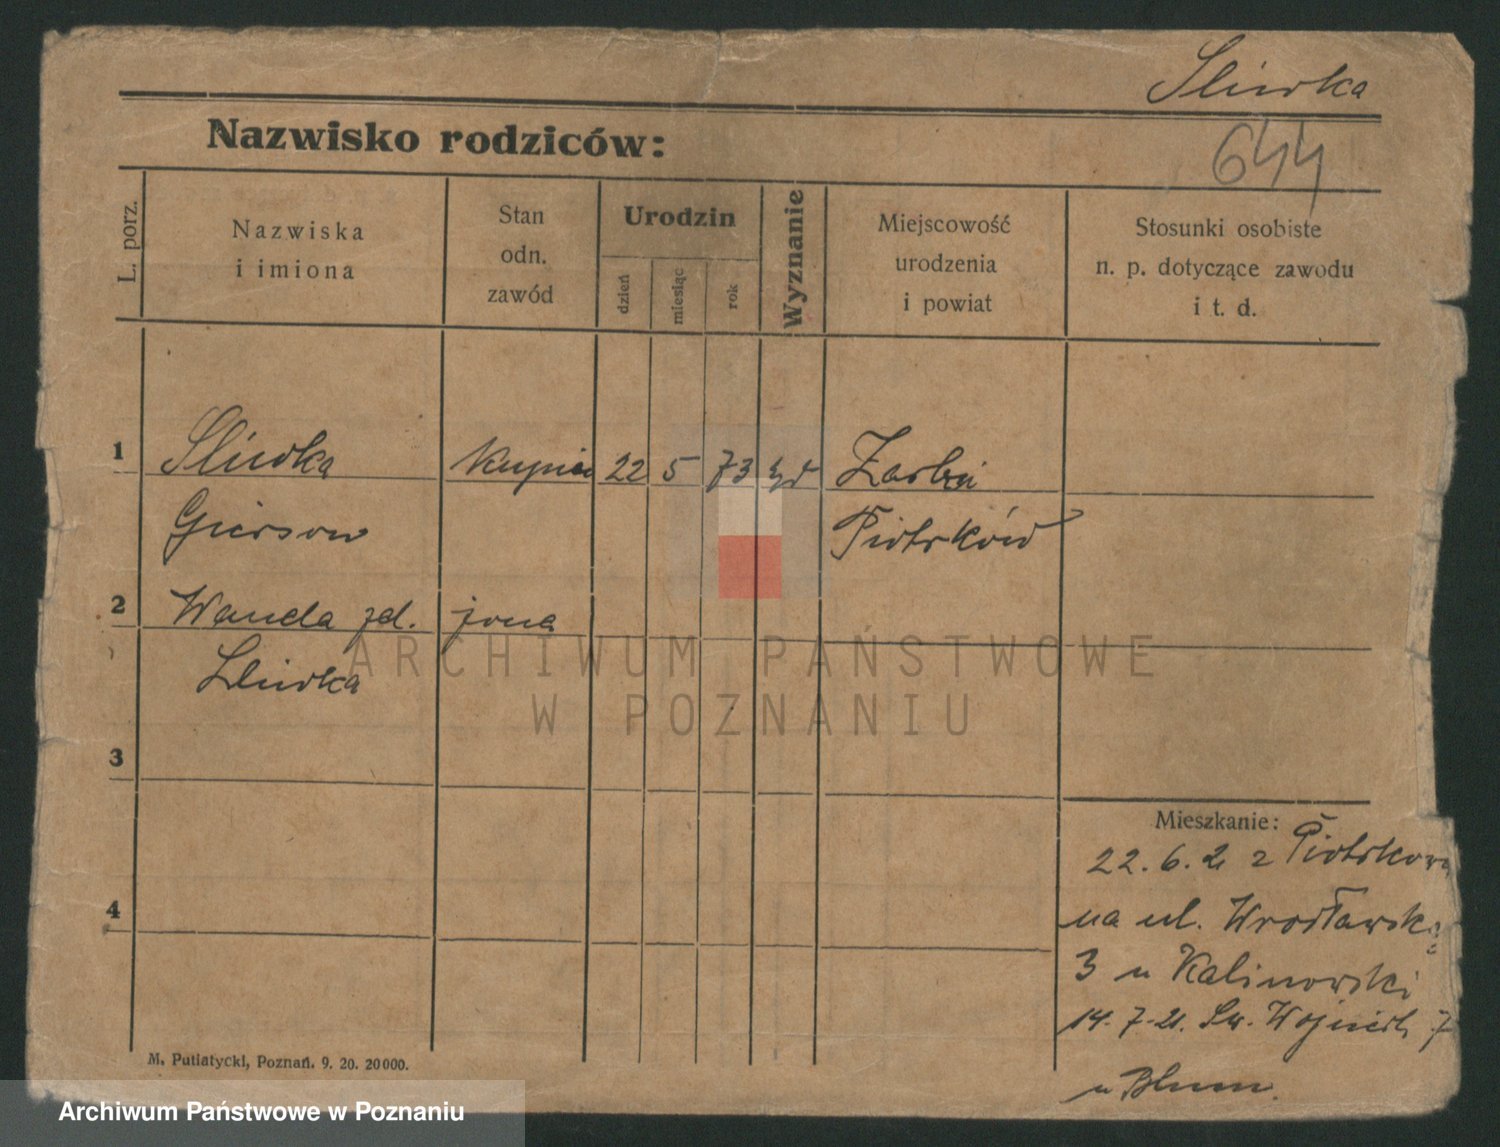 Sliwka
Nazwisko rodziców:
644
L. porz.
Nazwiska
i imiona
Stan
odn.
zawód
Urodzin
dzień
miesiąc
rok
Wyznanie
Miejscowość
urodzenia
i powiat
Stosunki osobiste
n. p. dotyczące zawodu
i t. d.
1 Sliwka kupiec 22 5 73 żyd
Gierson Piotrków
2 Wanda zd. żona
Sliwka
3
4
Mieszkanie:
22. 6. 21 z Piotrkowa
na ul. Wrocławską
3 u Kalinowski
14. 7. 21. Św. Wojciech 7
u Blum.
M. Putiatycki, Poznań. 9. 20. 20000.
ARCHIWUM PAŃSTWOWE
W POZNANIU
Archiwum Państwowe w Poznaniu